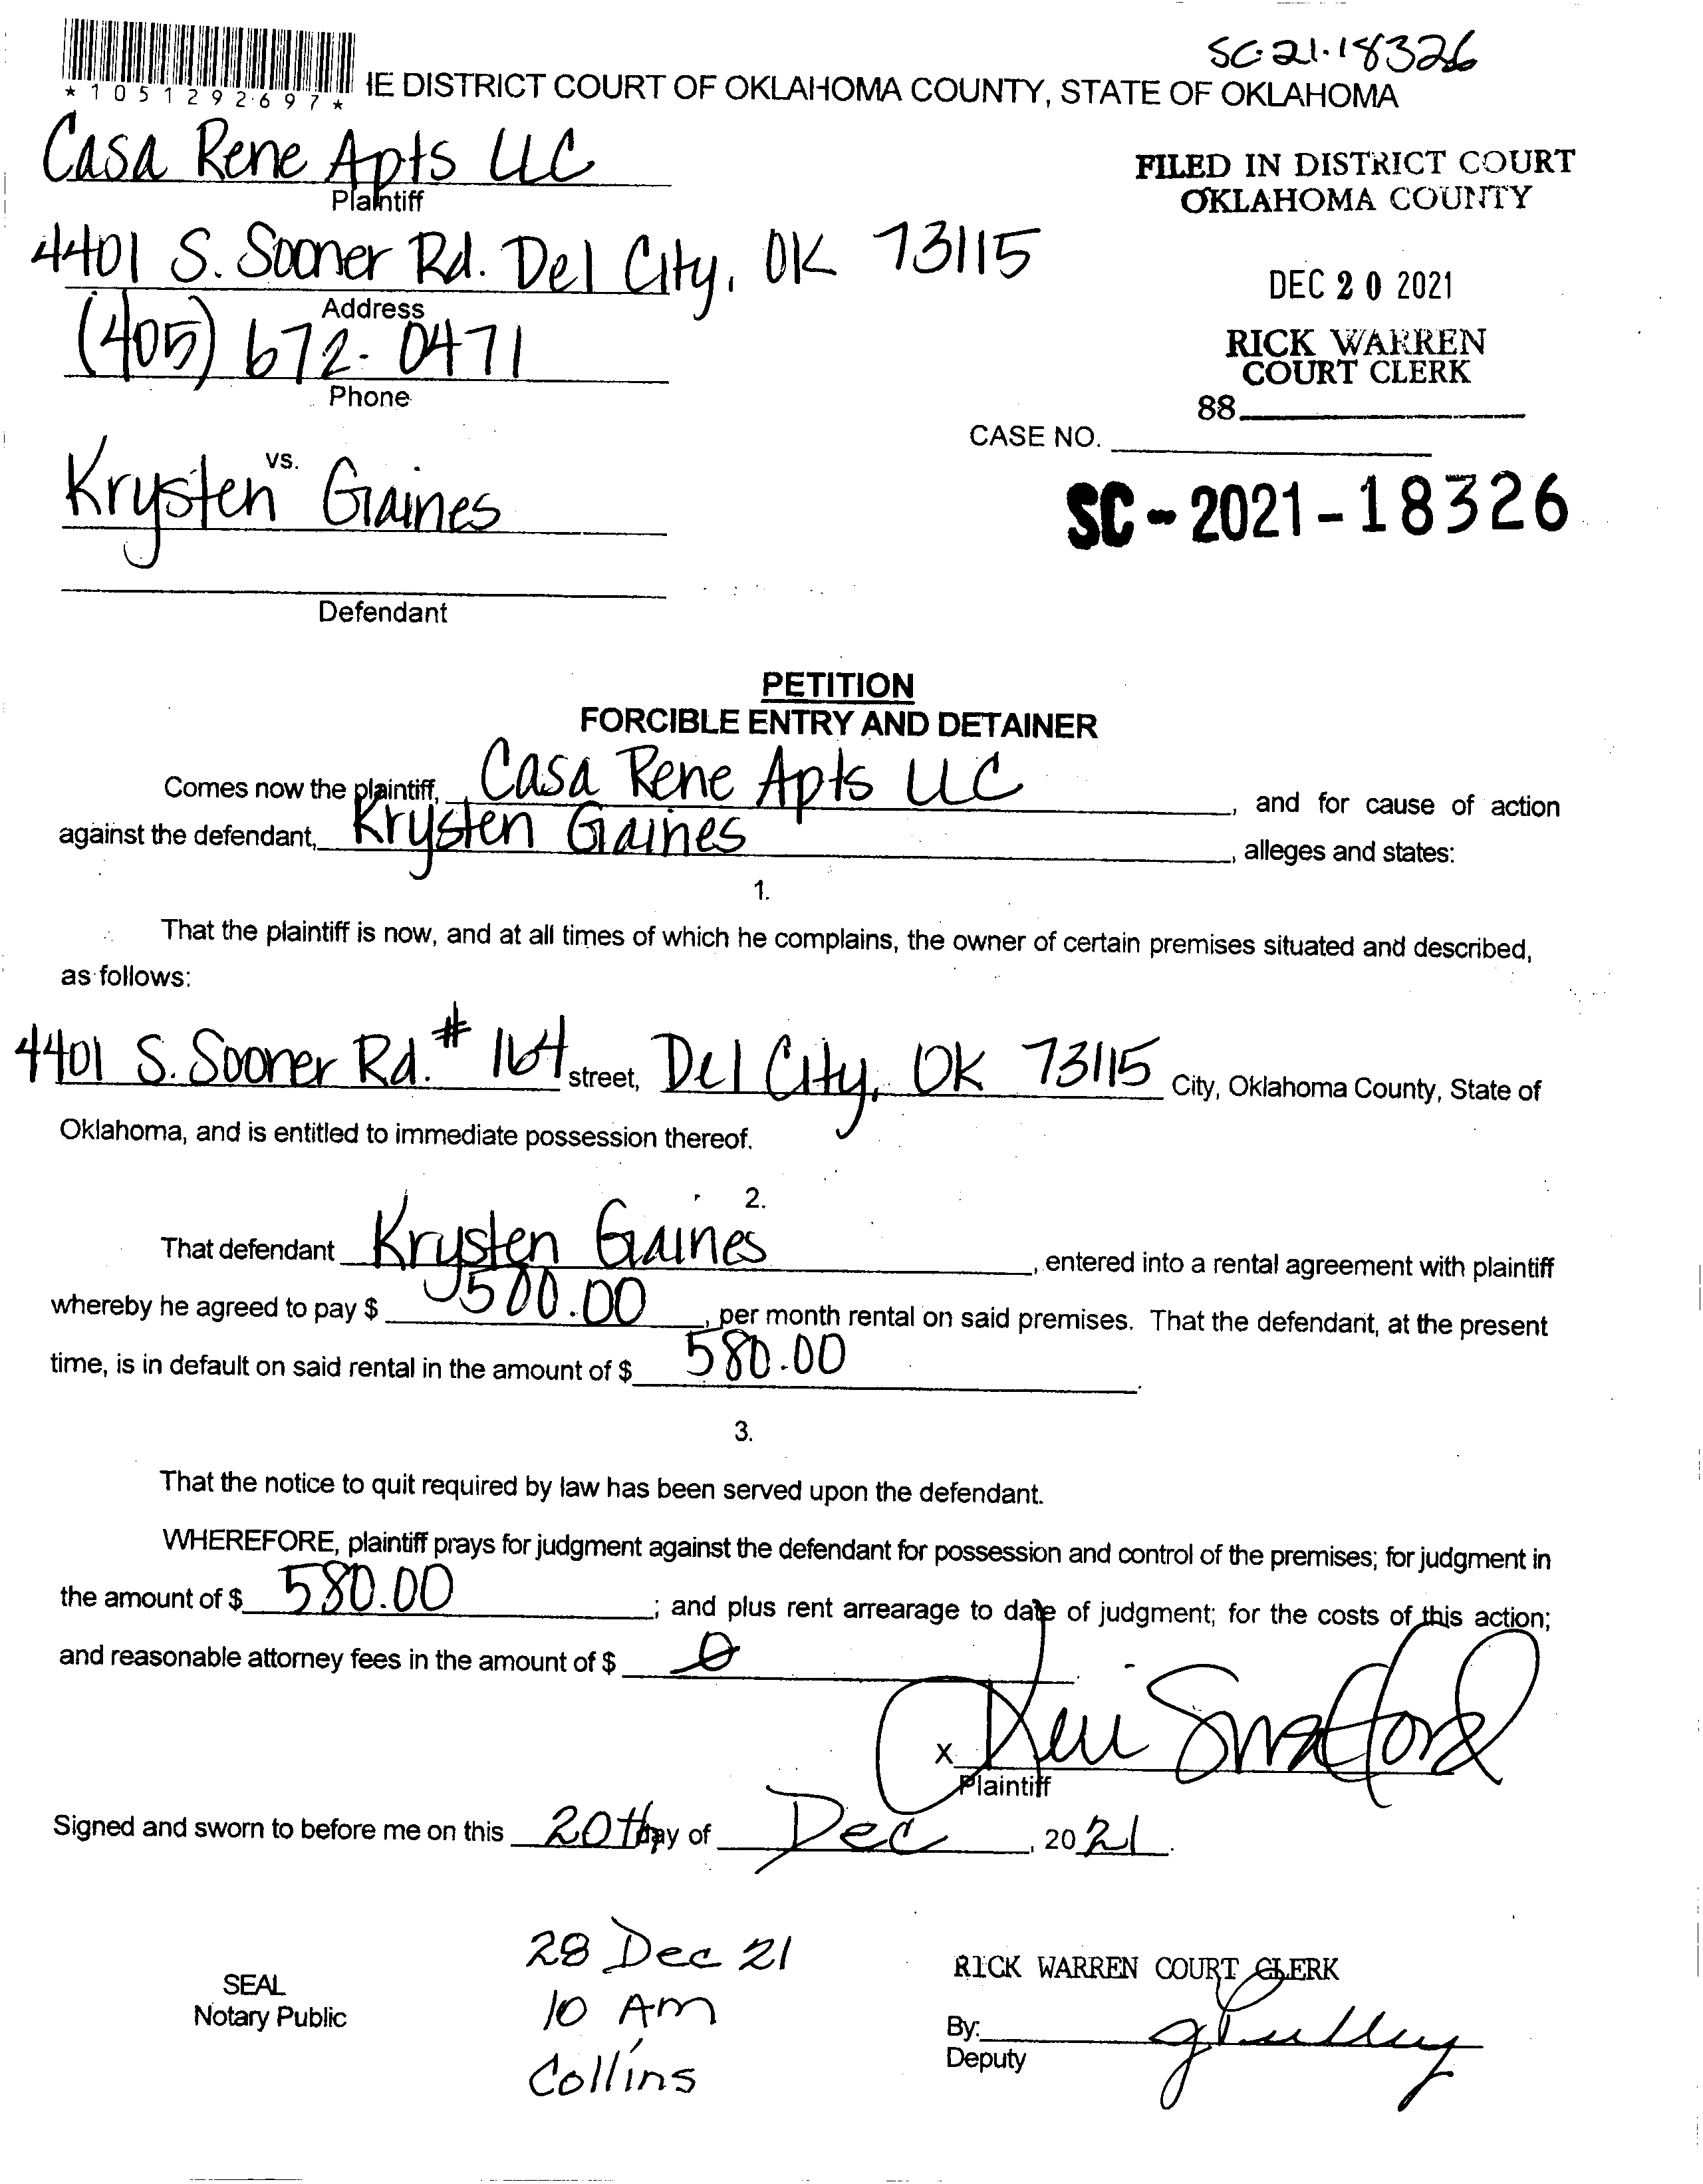 SC-21-18326
*1051292697*
IE DISTRICT COURT OF OKLAHOMA COUNTY, STATE OF OKLAHOMA
Casa Rene Apts LLC
Plaintiff
FILED IN DISTRICT COURT
OKLAHOMA COUNTY
4401 S. Sooner Rd. Del City, OK 73115
Address
DEC 20 2021
(405) 672-0471
Phone
RICK WARREN
COURT CLERK
88
CASE NO.
vs.
Krysten Gaines
SC-2021-18326
Defendant
PETITION
FORCIBLE ENTRY AND DETAINER
Comes now the plaintiff, Casa Rene Apts LLC, and for cause of action
against the defendant, Krysten Gaines, alleges and states:
1.
That the plaintiff is now, and at all times of which he complains, the owner of certain premises situated and described,
as follows:
4401 S. Sooner Rd. # 164 street, Del City, OK 73115 City, Oklahoma County, State of
Oklahoma, and is entitled to immediate possession thereof.
2.
That defendant Krysten Gaines, entered into a rental agreement with plaintiff
whereby he agreed to pay $ 500.00, per month rental on said premises. That the defendant, at the present
time, is in default on said rental in the amount of $ 580.00.
3.
That the notice to quit required by law has been served upon the defendant.
WHEREFORE, plaintiff prays for judgment against the defendant for possession and control of the premises; for judgment in
the amount of $ 580.00; and plus rent arrearage to date of judgment; for the costs of this action;
and reasonable attorney fees in the amount of $ 0
X
Plaintiff
Signed and sworn to before me on this 20th day of Dec, 2021.
28 Dec 21
10 Am
Collins
SEAL
Notary Public
RICK WARREN COURT CLERK
By:
Deputy